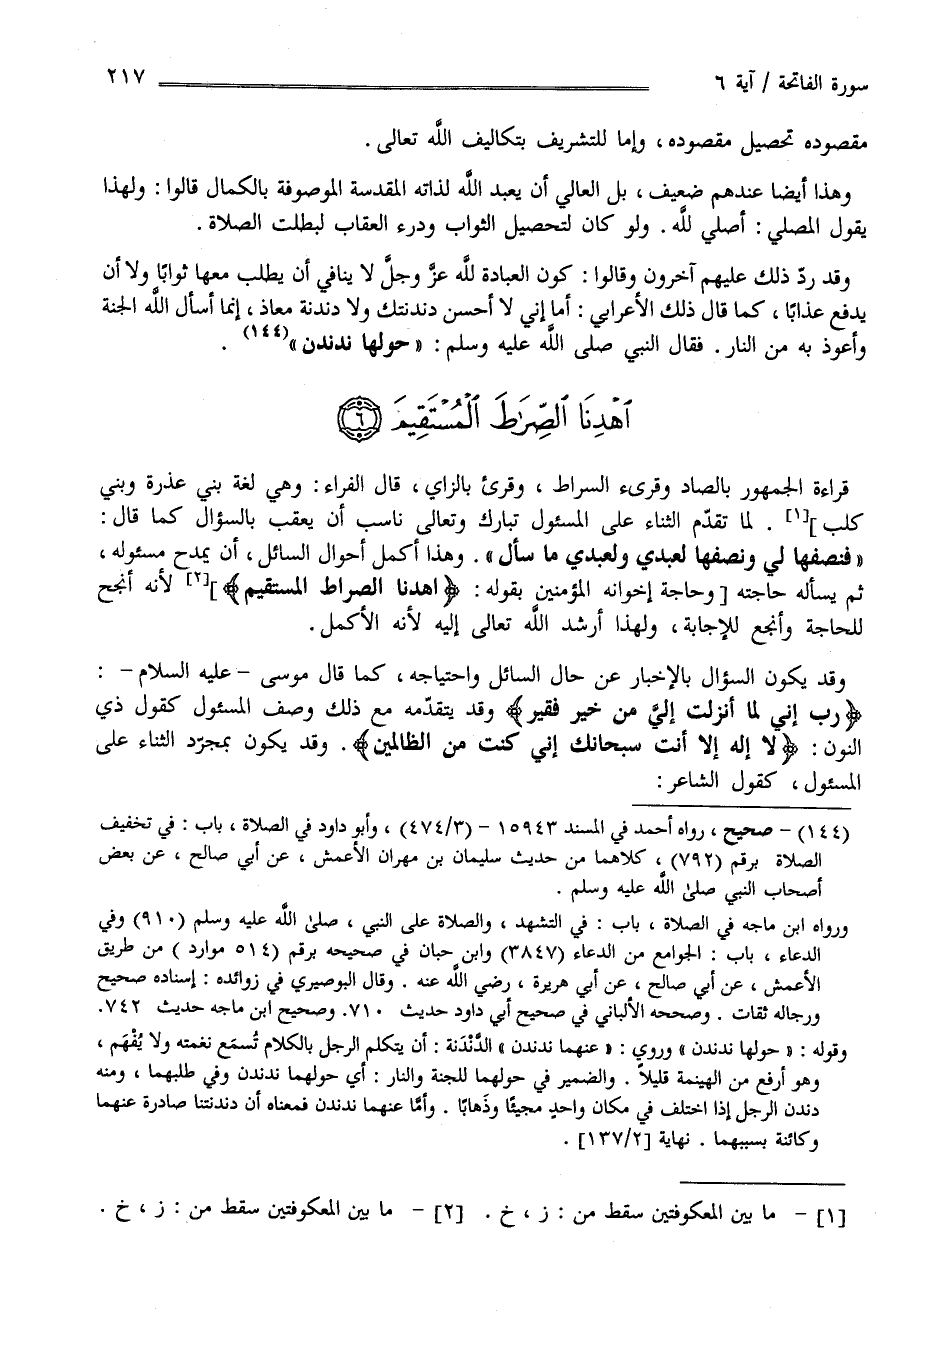 سورة الفاتحة / آية ٦ ٢١٧
مقصوده تحصيل مقصوده ، وإما للتشريف بتكاليف اللَّه تعالى .
وهذا أيضا عندهم ضعيف ، بل العالي أن يعبد اللَّه لذاته المقدسة الموصوفة بالكمال قالوا : ولهذا
يقول المصلي : أصلي للَّه . ولو كان لتحصيل الثواب ودرء العقاب لبطلت الصلاة .
وقد ردّ ذلك عليهم آخرون وقالوا : كون العبادة للَّه عزَّ وجلَّ لا ينافي أن يطلب معها ثوابًا ولا أن
يدفع عذابًا ، كما قال ذلك الأعرابي : أما إني لا أحسن دندنتك ولا دندنة معاذ ، إنما أسأل اللَّه الجنة
وأعوذ به من النار . فقال النبي صلى اللَّه عليه وسلم : « حولها ندندن »(١٤٤) .
ٱهْدِنَا ٱلصِّرَٰطَ ٱلْمُسْتَقِيمَ ٦
قراءة الجمهور بالصاد وقرىء السراط ، وقرئ بالزاي ، قال الفراء : وهي لغة بني عذرة وبني
كلب ][١] . لما تقدّم الثناء على المسئول تبارك وتعالى ناسب أن يعقب بالسؤال كما قال :
« فنصفها لي ونصفها لعبدي ولعبدي ما سأل » . وهذا أكمل أحوال السائل ، أن يمدح مسئوله ،
ثم يسأله حاجته [ وحاجة إخوانه المؤمنين بقوله : ﴿ اهدنا الصراط المستقيم ﴾ ][٢] لأنه أنجح
للحاجة وأنجع للإجابة ، ولهذا أرشد اللَّه تعالى إليه لأنه الأكمل .
وقد يكون السؤال بالإخبار عن حال السائل واحتياجه ، كما قال موسى - عليه السلام - :
﴿ رب إني لما أنزلت إليَّ من خير فقير ﴾ وقد يتقدّمه مع ذلك وصف المسئول كقول ذي
النون : ﴿ لا إله إلا أنت سبحانك إني كنت من الظالمين ﴾ . وقد يكون بمجرّد الثناء على
المسئول ، كقول الشاعر :
(١٤٤) - صحيح ، رواه أحمد في المسند ١٥٩٤٣ - (٤٧٤/٣) ، وأبو داود في الصلاة ، باب : في تخفيف
الصلاة برقم (٧٩٢) ، كلاهما من حديث سليمان بن مهران الأعمش ، عن أبي صالح ، عن بعض
أصحاب النبي صلىٰ اللَّه عليه وسلم .
ورواه ابن ماجه في الصلاة ، باب : في التشهد ، والصلاة على النبي ، صلىٰ اللَّه عليه وسلم (٩١٠) وفي
الدعاء ، باب : الجوامع من الدعاء (٣٨٤٧) وابن حبان في صحيحه برقم (٥١٤ موارد ) من طريق
الأعمش ، عن أبي صالح ، عن أبي هريرة ، رضي اللَّه عنه . وقال البوصيري في زوائده : إسناده صحيح
ورجاله ثقات . وصححه الألباني في صحيح أبي داود حديث ٧١٠. وصحيح ابن ماجه حديث ٧٤٢.
وقوله : « حولها ندندن » وروي : « عنهما ندندن » الدَّنْدَنة : أن يتكلم الرجل بالكلام تُسمَع نغمته ولا يُفْهَم ،
وهو أرفع من الهينمة قليلاً . والضمير في حولهما للجنة والنار : أي حولهما ندندن وفي طلبهما ، ومنه
دندن الرجل إذا اختلف في مكان واحدٍ مجيئًا وذَهابًا . وأمَّا عنهما ندندن فمعناه أن دندنتنا صادرة عنهما
وكائنة بسببهما . نهاية [١٣٧/٢] .
[١] - ما بين المعكوفتين سقط من : ز ، خ . [٢] - ما بين المعكوفتين سقط من : ز ، خ .